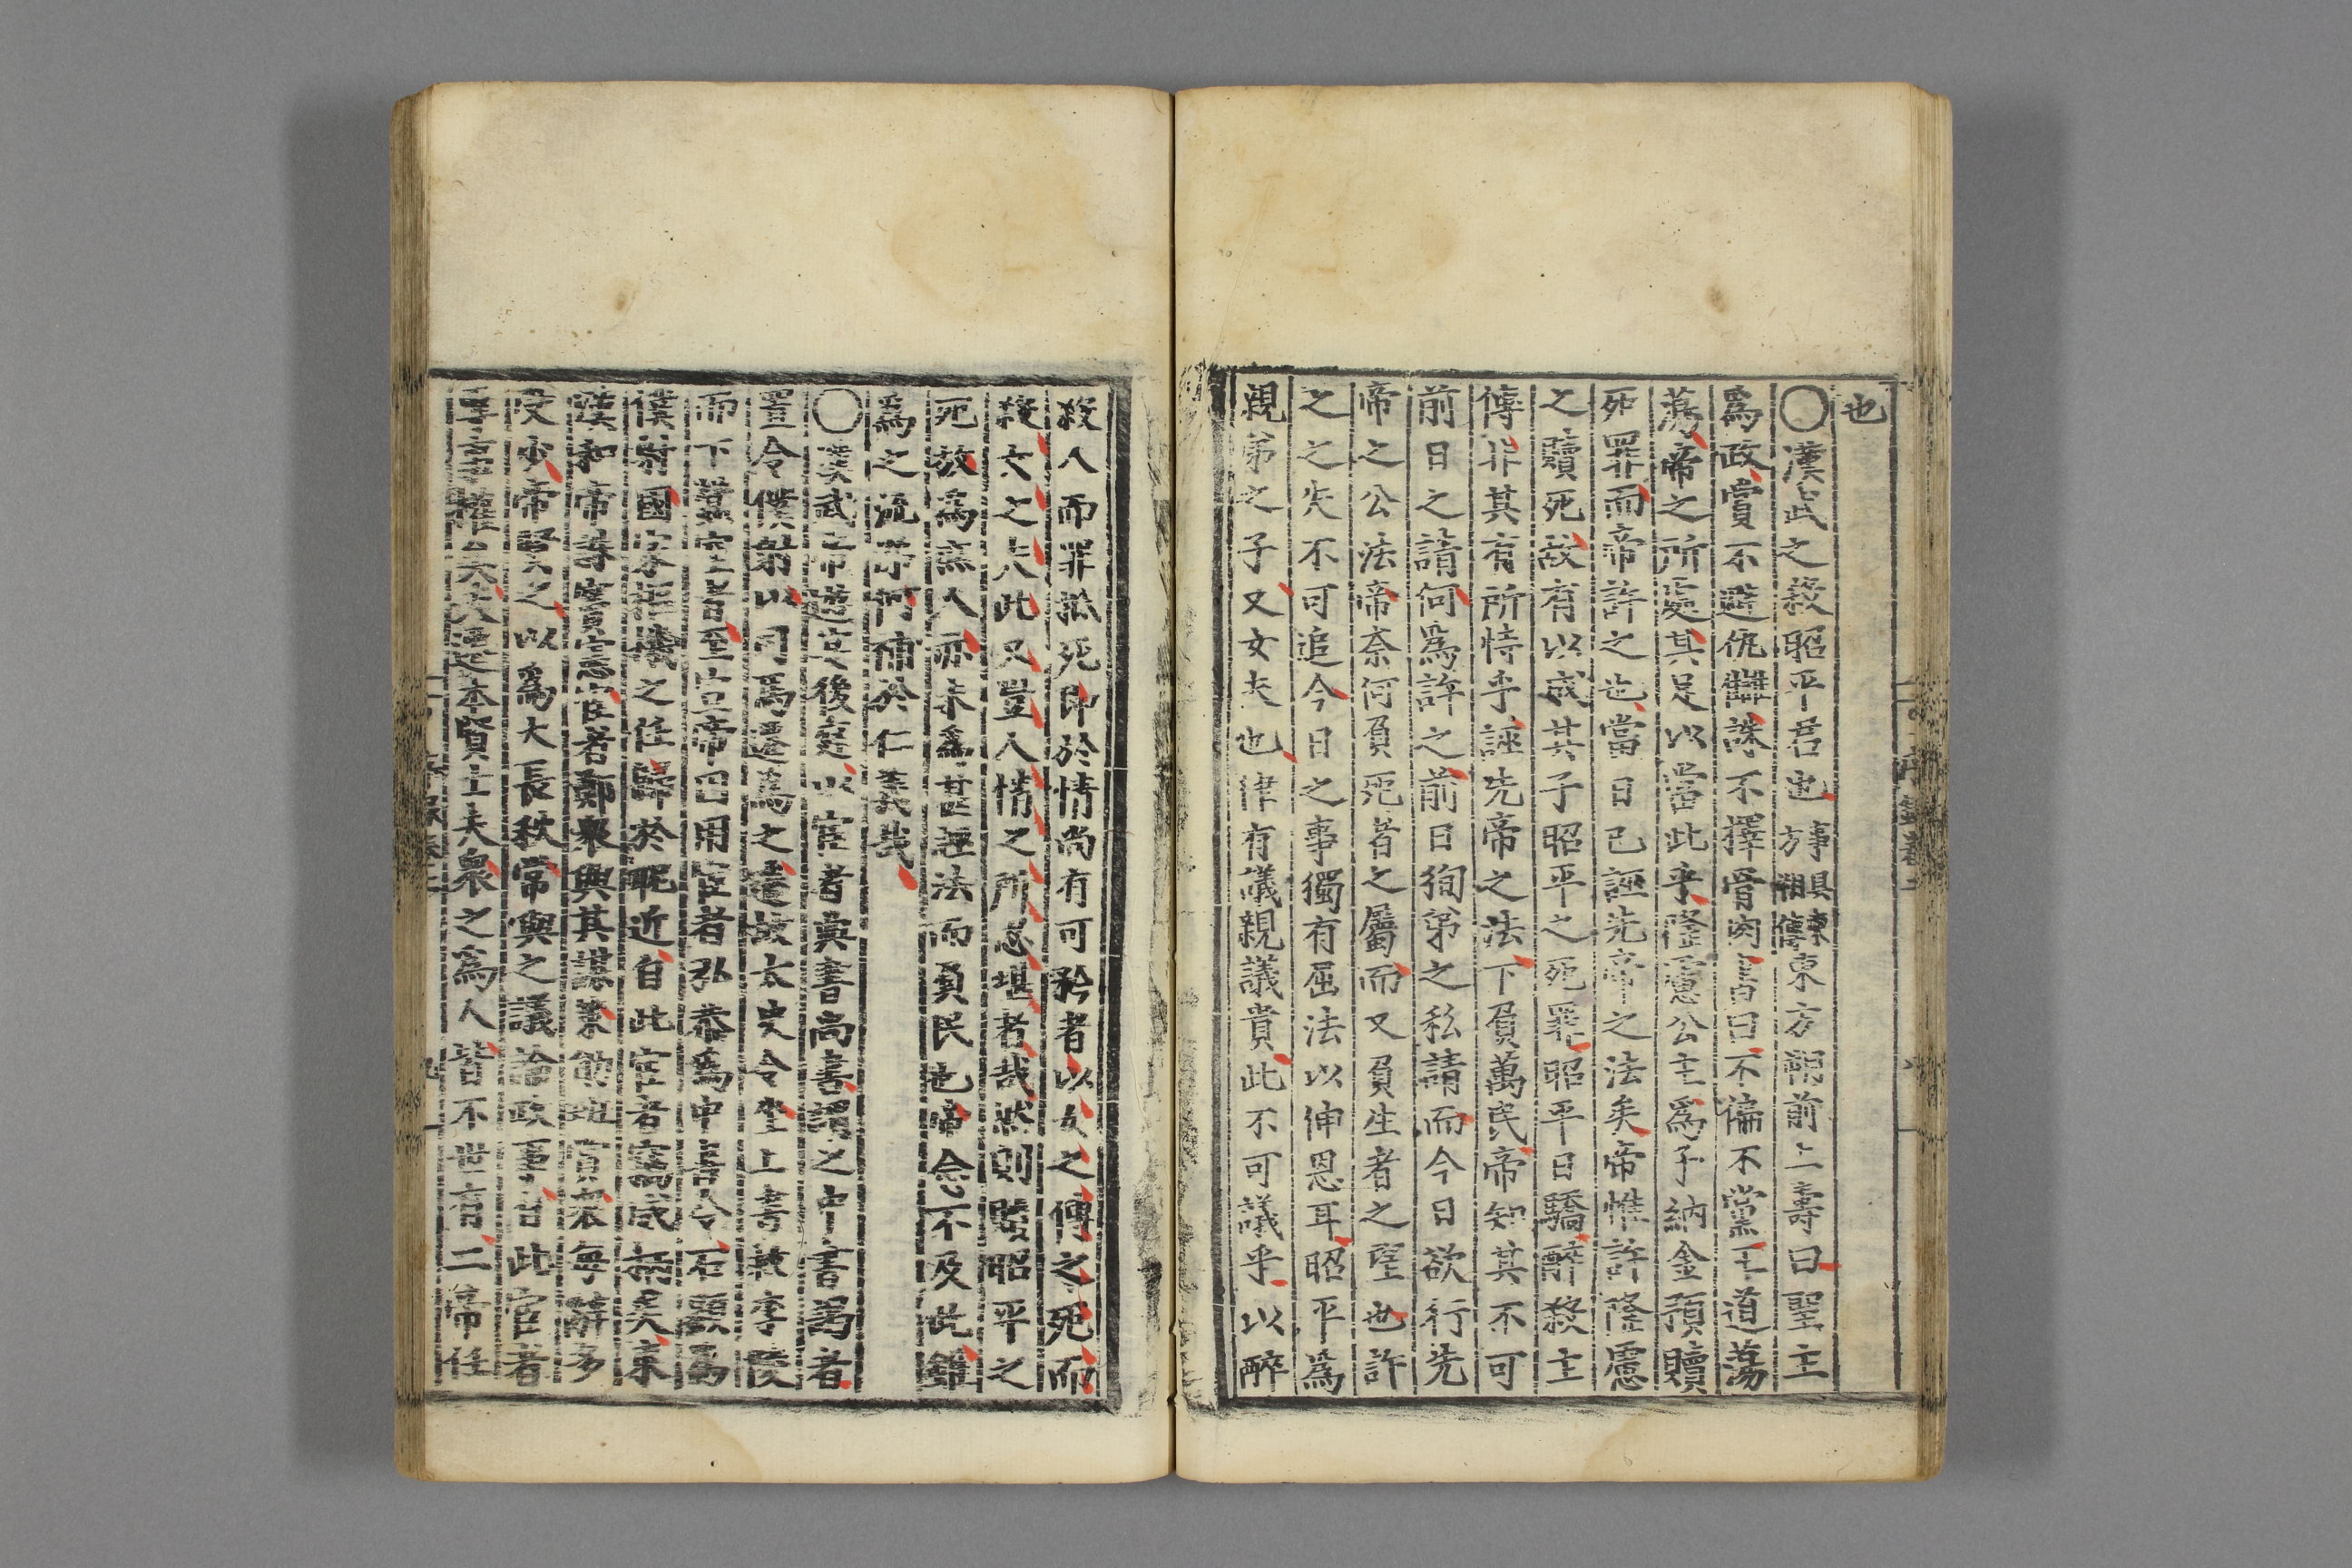 也
〇漢武之殺昭平君也事具東方朔傳東方朔前上壽曰聖主
爲政賞不避仇讎誅不擇骨肉書曰不偏不黨王道蕩
蕩帝之所處其足以當此乎隆慮公主爲子納金預贖
死罪而帝許之也當日已誣先帝之法矣帝惟許隆慮
之贖死故有以成其子昭平之死罪昭平日驕醉殺主
傅罪其有所恃乎誣先帝之法下負萬民帝知其不可
前日之請何爲許之前日徇弟之私請而今日欲行先
帝之公法帝奈何負死者之屬而又負生者之望也許
之之失不可追今日之事獨有屈法以伸恩耳昭平爲
親弟之子又女夫也律有議親議貴此不可議乎以醉
殺人而罪抵死即於情尚有可矜者以女之傅之死而
殺女之夫此又豈人情之所忍堪者哉然則贖昭平之
死故爲無人亦未爲甚誣法而負民也帝念不及此雖
爲之流涕何補於仁義哉
〇漢武帝遊宴後庭以宦者典書尚書謂之中書爲者
置令僕射以司馬遷爲之遷故太史令坐上書救李陵
而下蠶室者至宣帝曰用宦者弘恭爲中書令石顯爲
僕射國家樞機之任歸於昵近自此宦者寖成禍矣東
漢和帝誅竇憲宦者鄭衆與其謀策勳班賞衆每辭多
受少帝賢之以爲大長秋常與之議論政事自此宦者
專權矣夫遷本賢士夫衆之爲人皆不世有二帝任